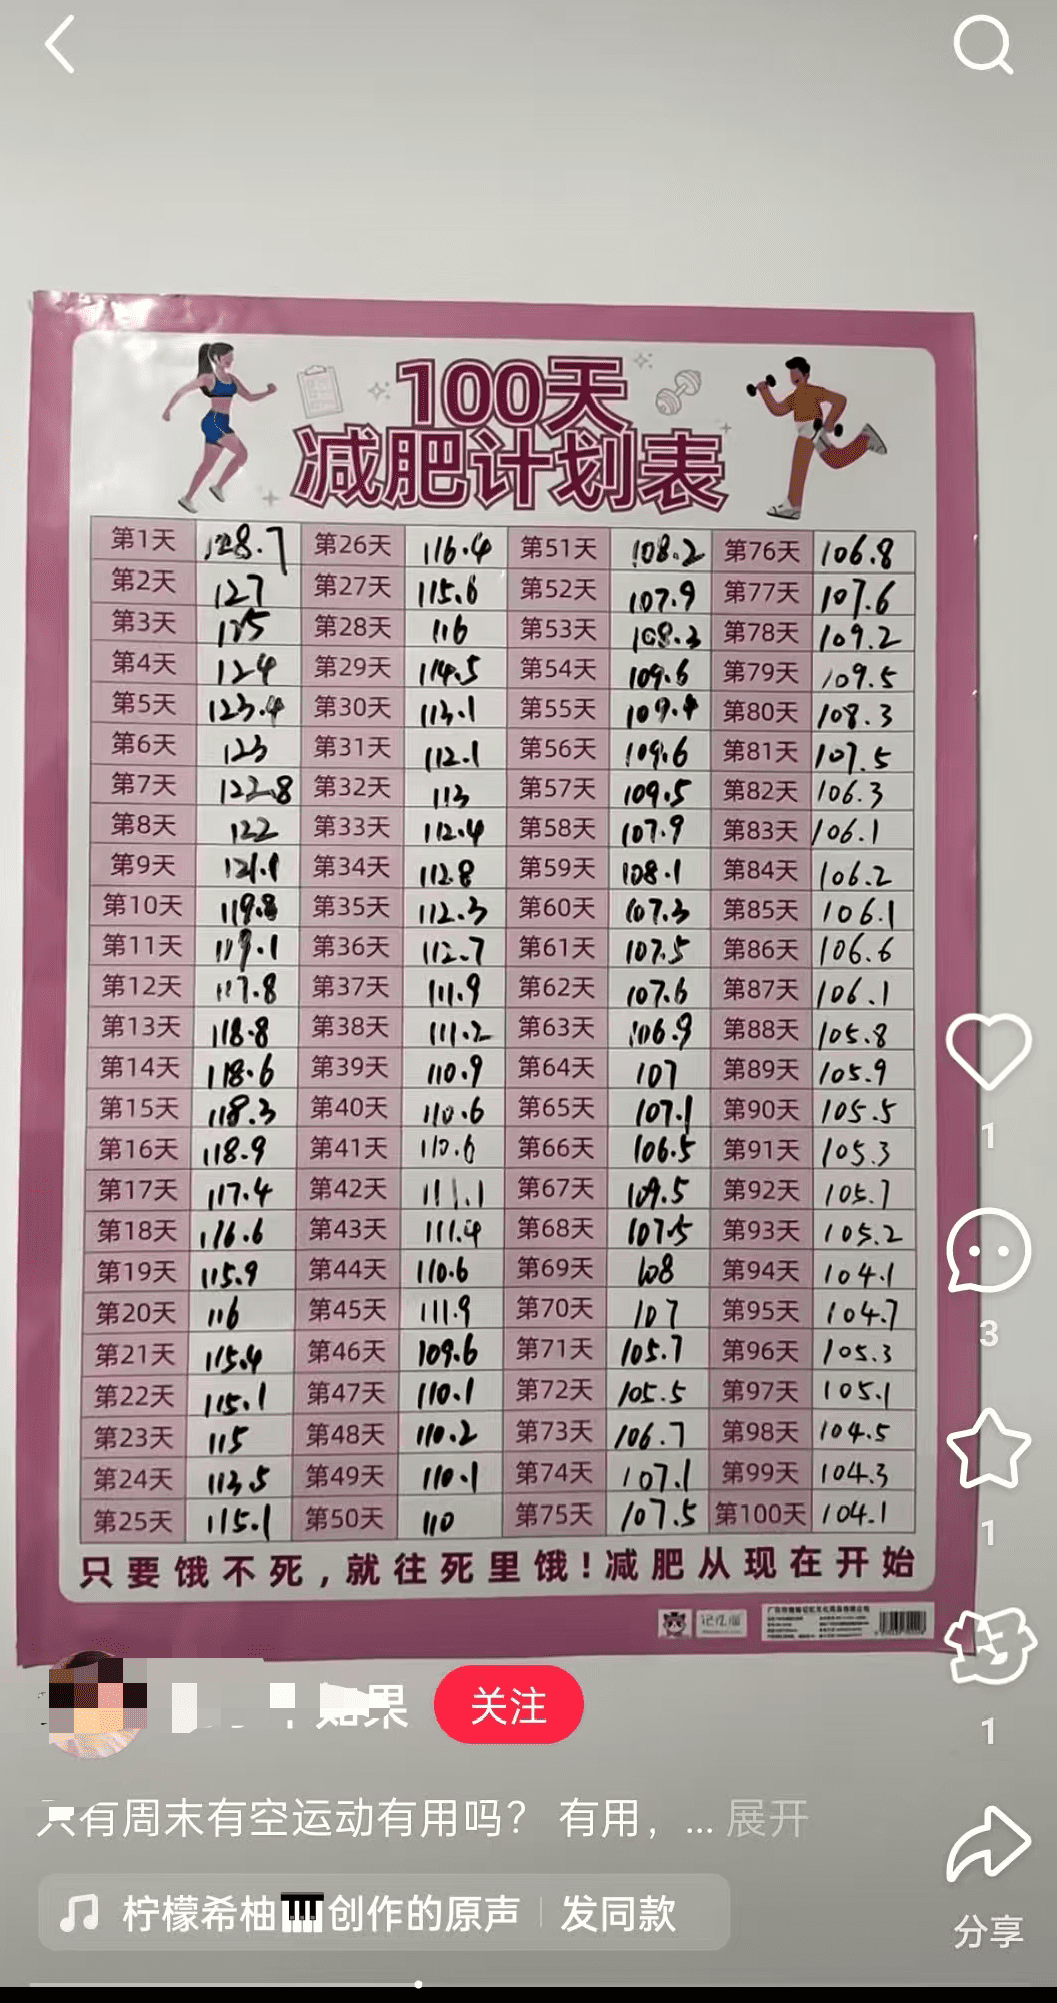 100天
减肥计划表
第1天 128.7 第26天 116.4 第51天 108.2 第76天 106.8
第2天 127 第27天 115.6 第52天 107.9 第77天 107.6
第3天 125 第28天 116 第53天 108.3 第78天 109.2
第4天 124 第29天 114.5 第54天 109.6 第79天 109.5
第5天 123.4 第30天 113.1 第55天 109.4 第80天 108.3
第6天 123 第31天 112.1 第56天 109.6 第81天 107.5
第7天 122.8 第32天 113 第57天 109.5 第82天 106.3
第8天 122 第33天 112.4 第58天 107.9 第83天 106.1
第9天 121.1 第34天 112.8 第59天 108.1 第84天 106.2
第10天 119.8 第35天 112.3 第60天 107.3 第85天 106.1
第11天 119.1 第36天 112.7 第61天 107.5 第86天 106.6
第12天 117.8 第37天 111.9 第62天 107.6 第87天 106.1
第13天 118.8 第38天 111.2 第63天 106.9 第88天 105.8
第14天 118.6 第39天 110.9 第64天 107 第89天 105.9
第15天 118.3 第40天 110.6 第65天 107.1 第90天 105.5
第16天 118.9 第41天 110.6 第66天 106.5 第91天 105.3
第17天 117.4 第42天 111.1 第67天 109.5 第92天 105.7
第18天 116.6 第43天 111.4 第68天 107.5 第93天 105.2
第19天 115.9 第44天 110.6 第69天 108 第94天 104.1
第20天 116 第45天 111.9 第70天 107 第95天 104.7
第21天 115.4 第46天 109.6 第71天 105.7 第96天 105.3
第22天 115.1 第47天 110.1 第72天 105.5 第97天 105.1
第23天 115 第48天 110.2 第73天 106.7 第98天 104.5
第24天 113.5 第49天 110.1 第74天 107.1 第99天 104.3
第25天 115.1 第50天 110 第75天 107.5 第100天 104.1
只要饿不死，就往死里饿！减肥从现在开始
1
3
1
1
分享
如果 关注
只有周末有空运动有用吗？ 有用，... 展开
柠檬希柚🎹创作的原声 | 发同款